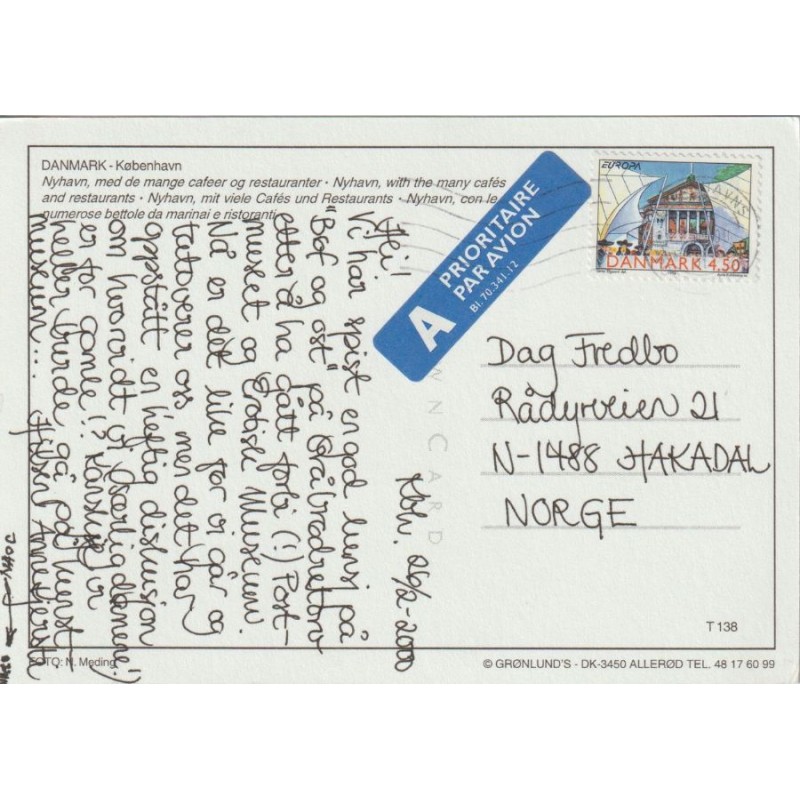 DANMARK - København
Nyhavn, med de mange cafeer og restauranter · Nyhavn, with the many cafés
and restaurants · Nyhavn, mit viele Cafés und Restaurants · Nyhavn, con le
numerose bettole da marinai e ristoranti
A
PRIORITAIRE
PAR AVION
Bl. 70.341.12
EUROPA
DANMARK 4.50
Kbh. 26/2-2000
Hei!
Vi har spist en god lunsj på
"Bof og ost" på Gråbrødretorv
etter å ha gått forbi (!) Post-
museet og Erotisk Museum.
Nå er det like før vi går og
tatoverer oss, men det har
oppstått en heftig diskusjon
om hvorvidt vi (særlig damene!)
er for gamle!? Kanskje vi
heller burde gå på kunst-
museum...
Hilsen Annekjersti
Dag Fredbo
Rådyrveien 21
N-1488 HAKADAL
NORGE
CARD
T 138
FOTO: N. Meding
© GRØNLUND'S - DK-3450 ALLERØD TEL. 48 17 60 99